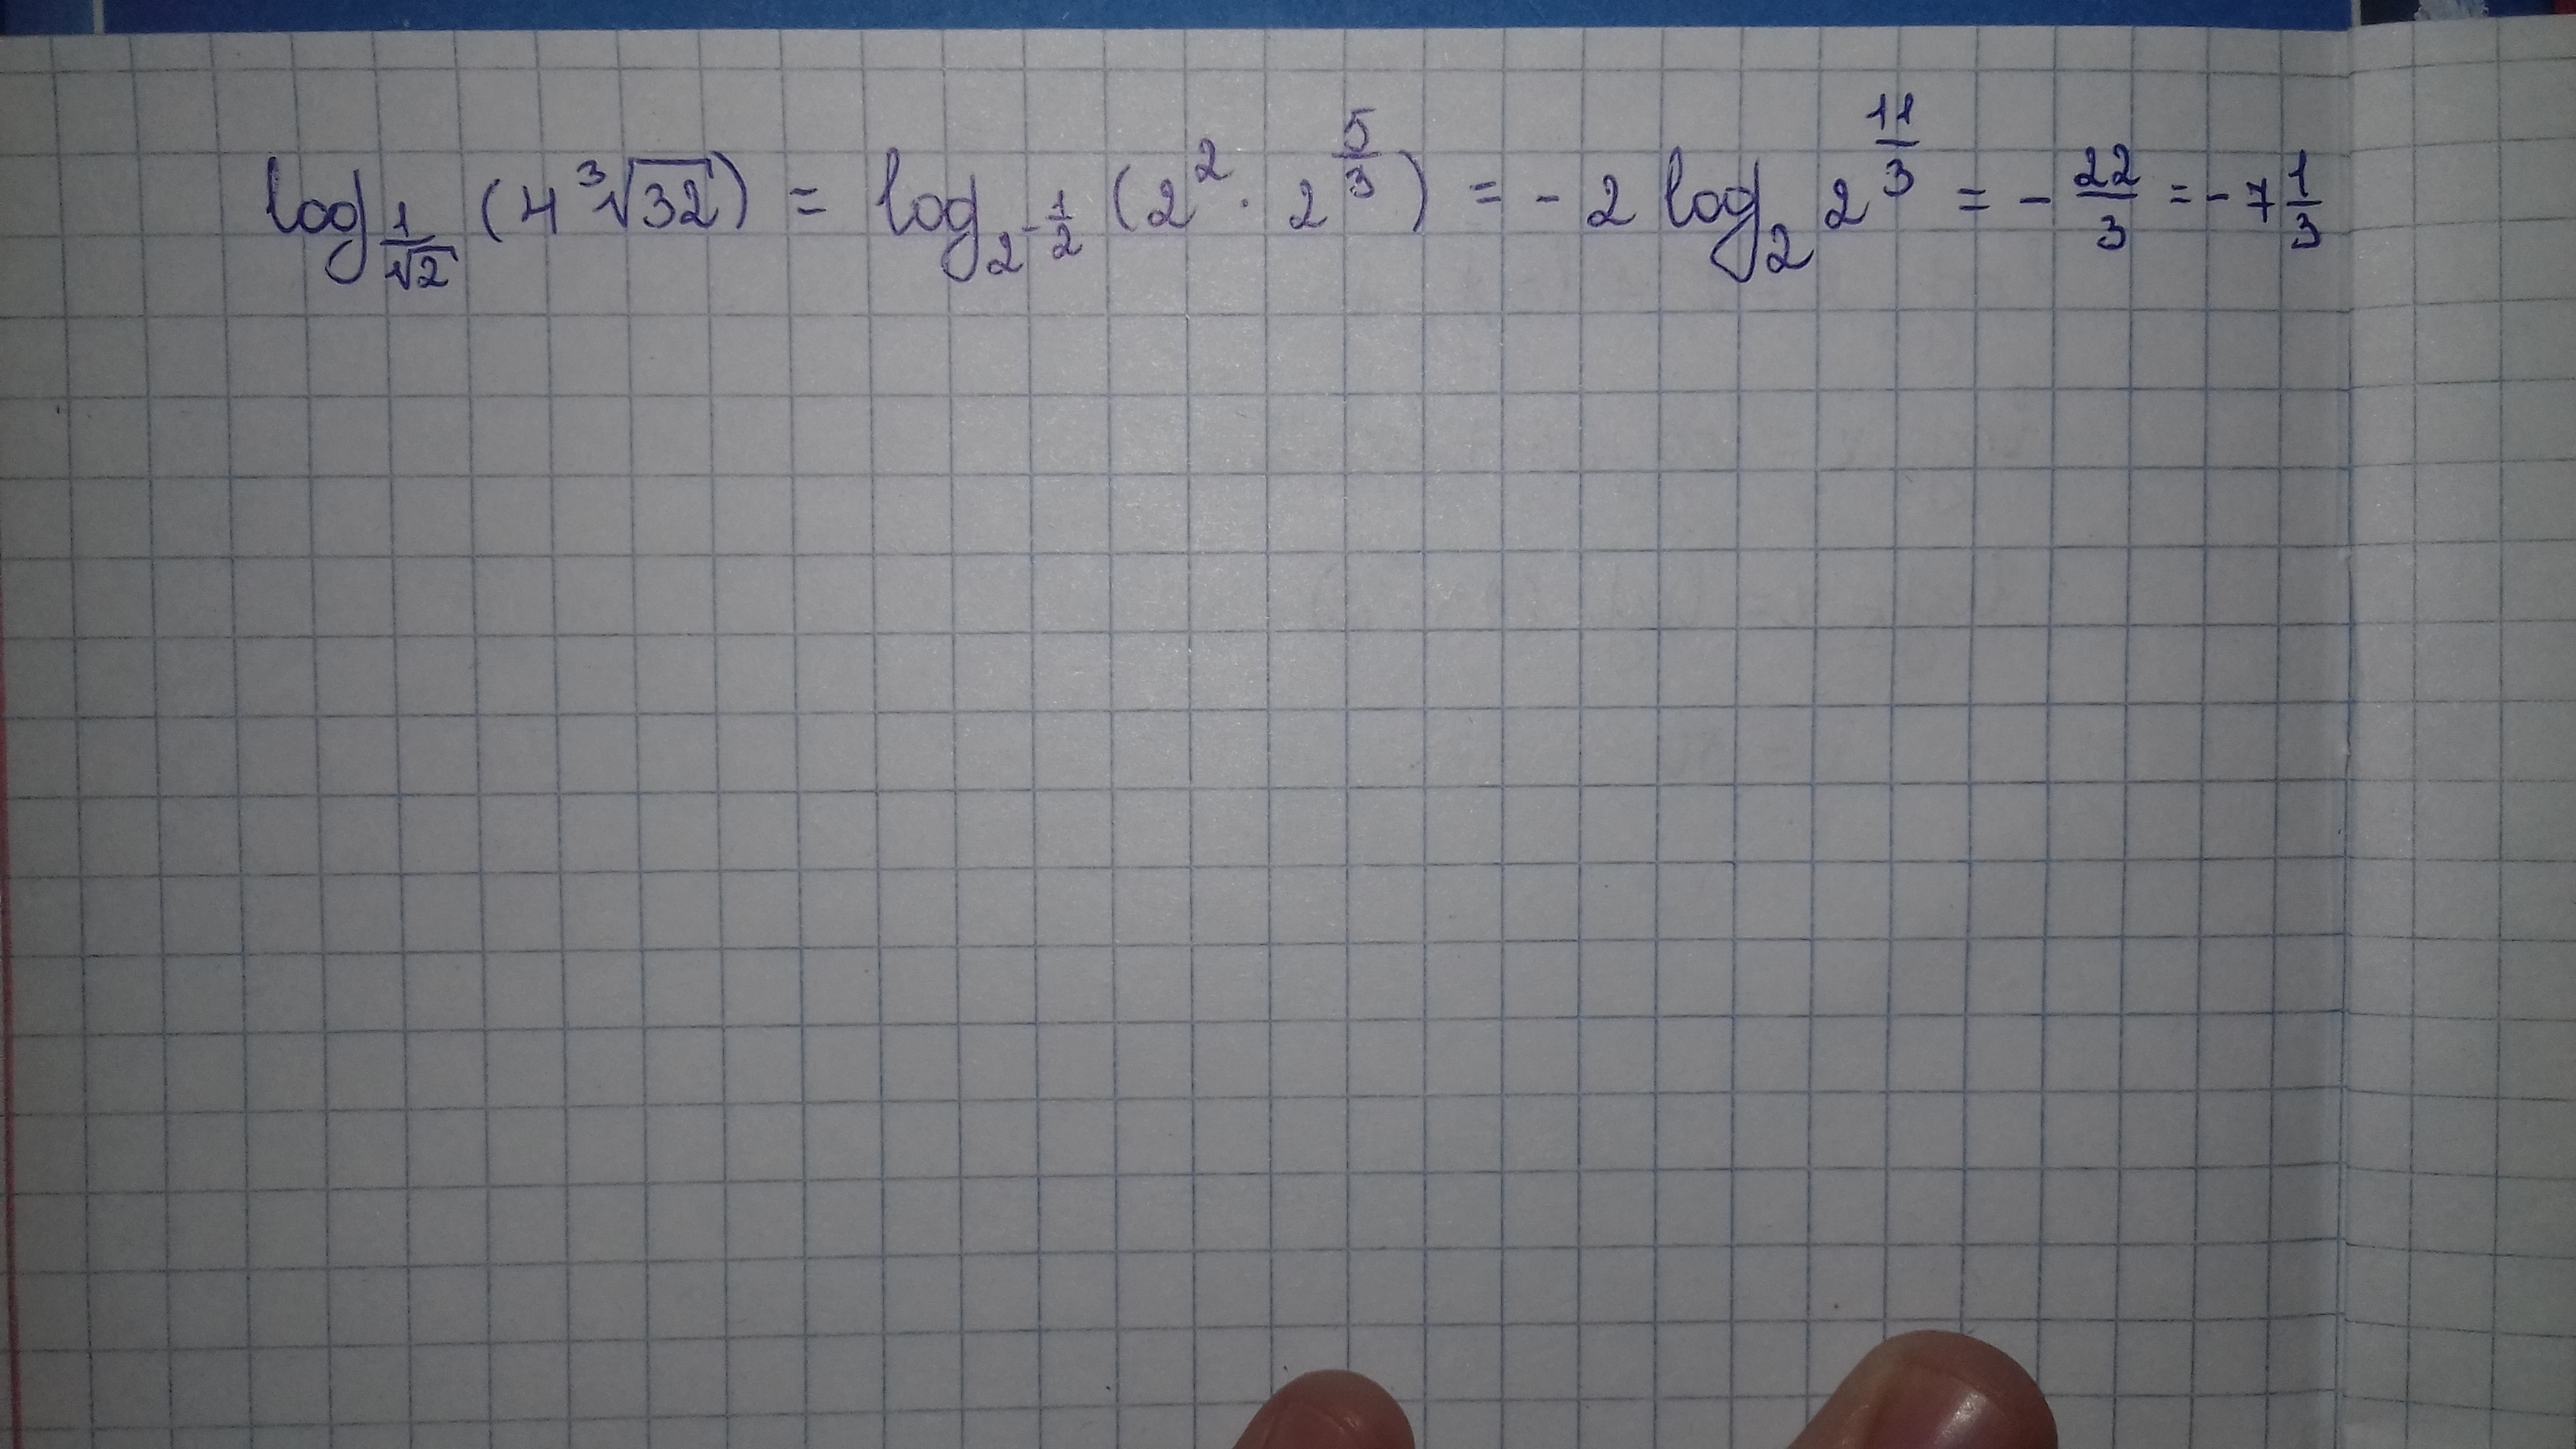 log_{1/√2} (4 ∛32) = log_{2^{-1/2}} (2^2 · 2^{5/3}) = - 2 log_2 2^{11/3} = - 22/3 = - 7 1/3